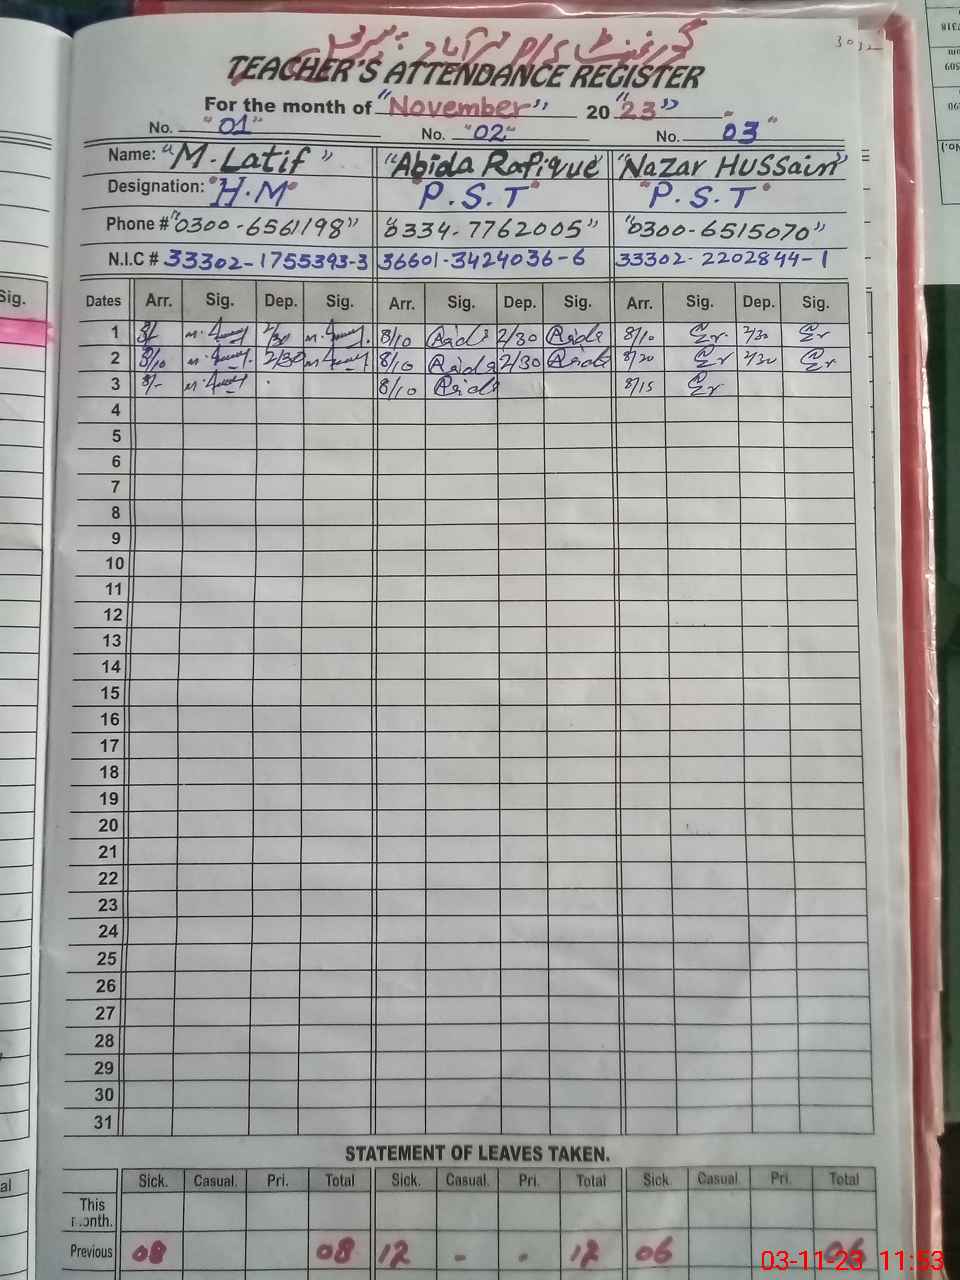 گورنمنٹ P/S
3032
TEACHER'S ATTENDANCE REGISTER
For the month of "November" 20"23"
No. "01" No. "02" No. "03"
Name: "M.Latif" "Abida Rafique" "Nazar HUSSain"
Designation: "H.M" "P.S.T" "P.S.T"
Phone # "0300-6561198" "0334-7762005" "0300-6515070"
N.I.C # 33302-1755393-3 36601-3424036-6 33302-2202844-1
Dates Arr. Sig. Dep. Sig. Arr. Sig. Dep. Sig. Arr. Sig. Dep. Sig.
1 8/- 2/30 8/10 2/30 8/10 2/30
2 8/10 2/30 8/10 2/30 8/20 2/30
3 8/- 8/10 8/15
4
5
6
7
8
9
10
11
12
13
14
15
16
17
18
19
20
21
22
23
24
25
26
27
28
29
30
31
STATEMENT OF LEAVES TAKEN.
Sick. Casual. Pri. Total Sick. Casual. Pri. Total Sick. Casual. Pri. Total
This month.
Previous 08 08 12 - - 12 06 06
03-11-23 11:53